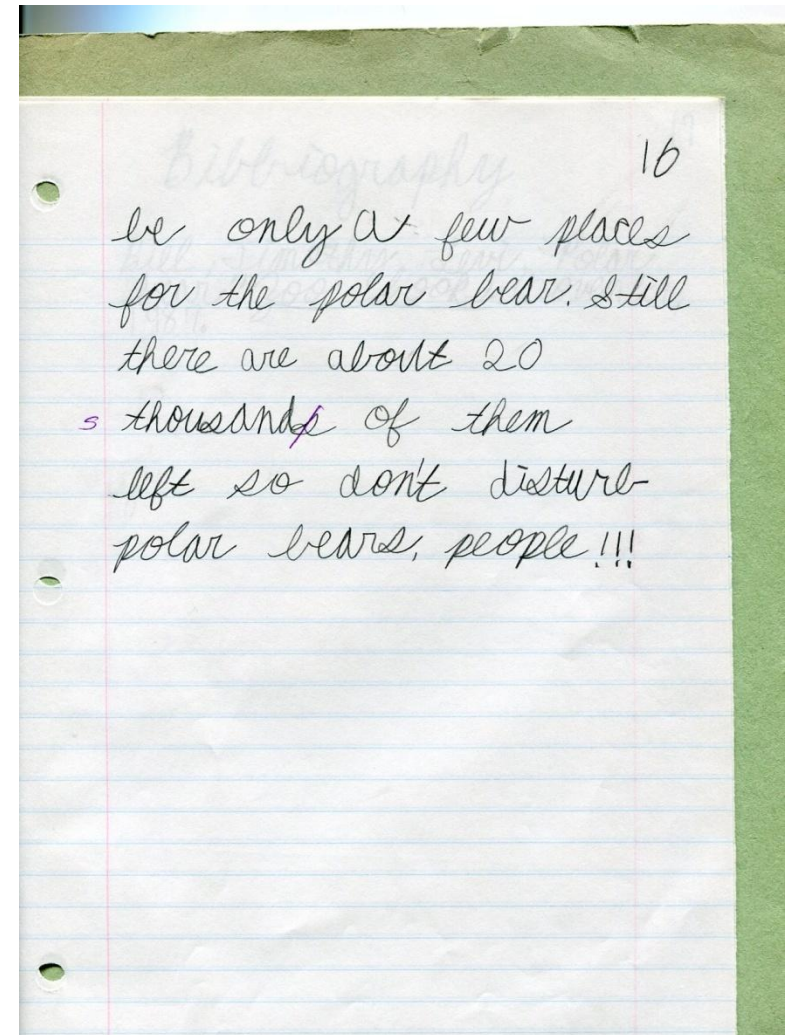 16
be only a few places
for the polar bear. Still
there are about 20
s thousands of them
left so don't disturb
polar bears, people!!!
17
Bibbiography